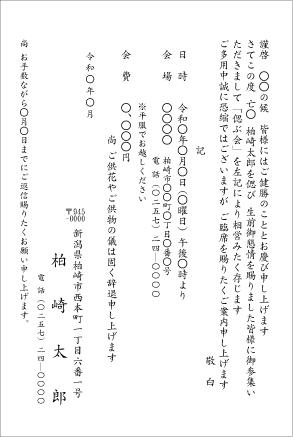 謹啓　〇〇の候　皆様にはご健勝のこととお慶び申し上げます
さてこの度 亡〇 柏崎太郎を偲び 生前御懇情を賜りました皆様に御参集い
ただきまして「偲ぶ会」を左記により相営みたく存じます
ご多用中誠に恐縮ではございますが、ご臨席を賜りたくご案内申し上げます
敬白
記
日　時　令和〇年〇月〇日（〇曜日）午後〇時より
会　場　柏崎市〇〇町〇丁目〇番〇号
電話（〇二五七）二四―〇〇〇〇
※平服でお越しください
会　費　〇、〇〇〇円
尚 ご供花やご供物の儀は固く辞退申し上げます
令和〇年〇月
〒945-0000　新潟県柏崎市西本町一丁目六番一号
柏崎太郎
電話（〇二五七）二四―〇〇〇〇
尚 お手数ながら〇月〇日までにご返信賜りたくお願い申し上げます。